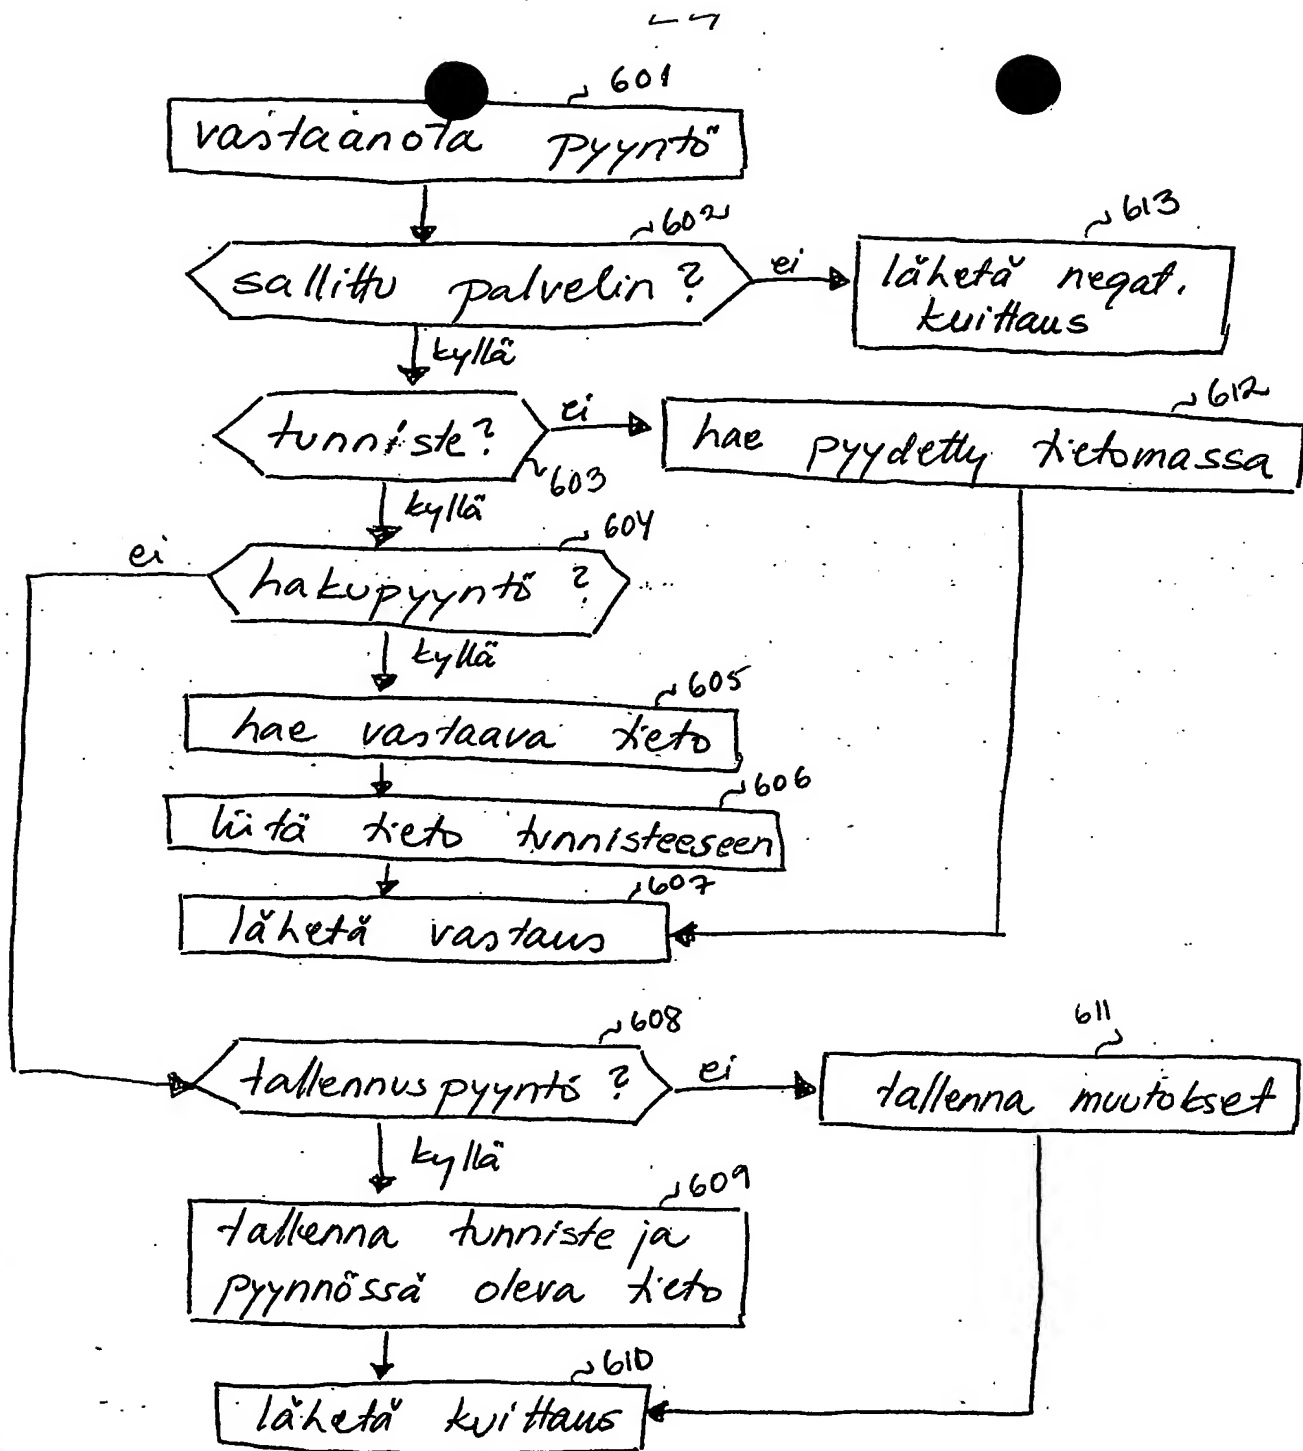 601
vastaanota pyyntö
602
sallittu palvelin?
ei
613
lähetä negat.
kuittaus
kyllä
tunniste?
603
ei
612
hae pyydetty tietomassa
kyllä
604
hakupyyntö?
ei
kyllä
605
hae vastaava tieto
606
liitä tieto tunnisteeseen
607
lähetä vastaus
608
tallennuspyyntö?
ei
611
tallenna muutokset
kyllä
609
tallenna tunniste ja
pyynnössä oleva tieto
610
lähetä kuittaus